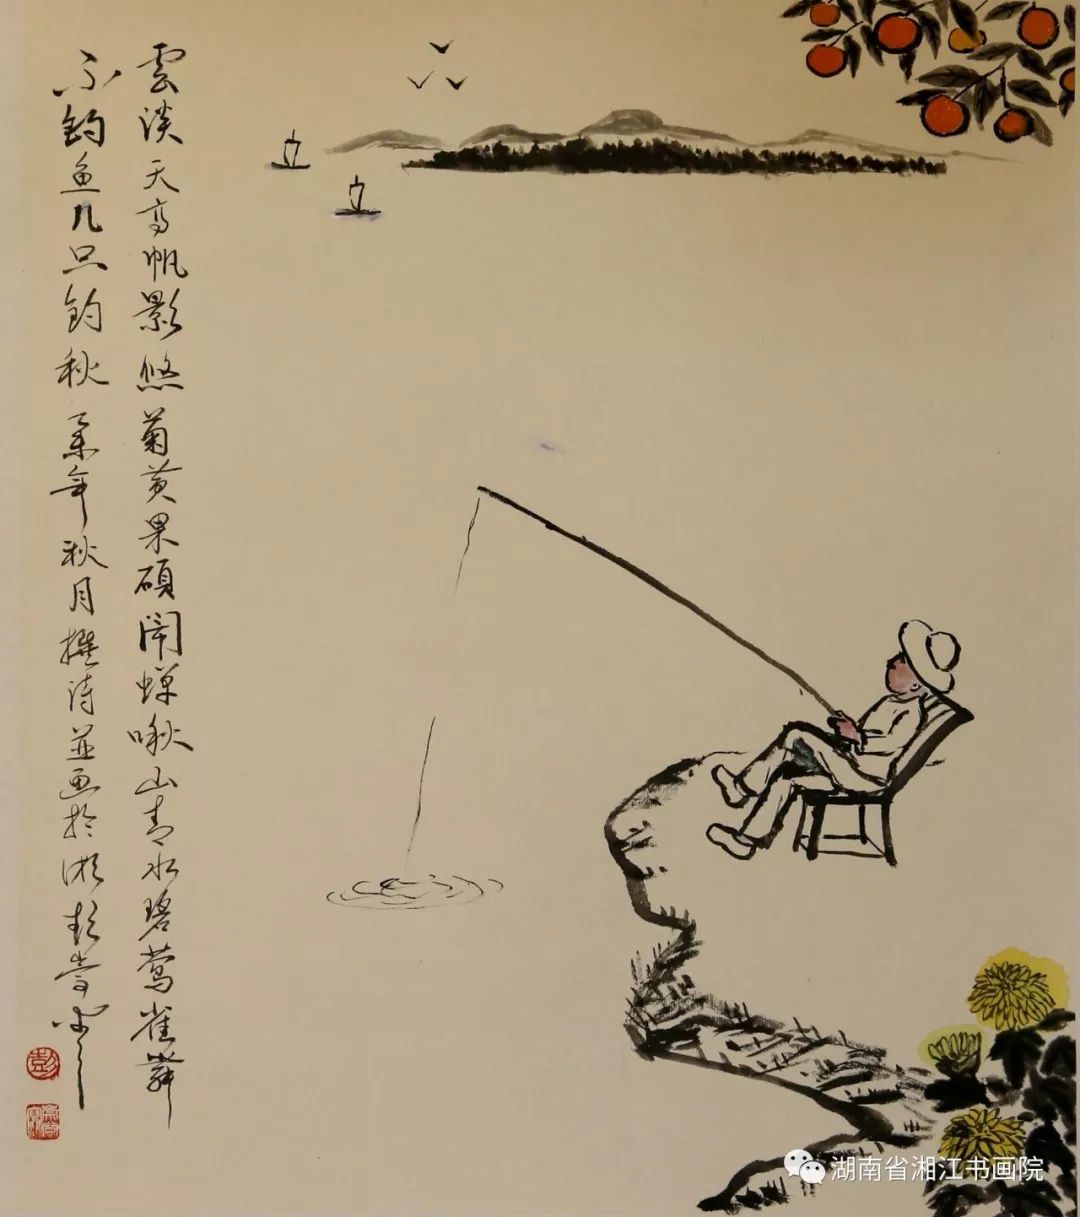 雲淡天高帆影悠菊黄果硕闹蝉啾山青水碧莺雀舞
不钓鱼儿只钓秋 年秋月撰诗並画於湘彭
彭
湖南省湘江书画院